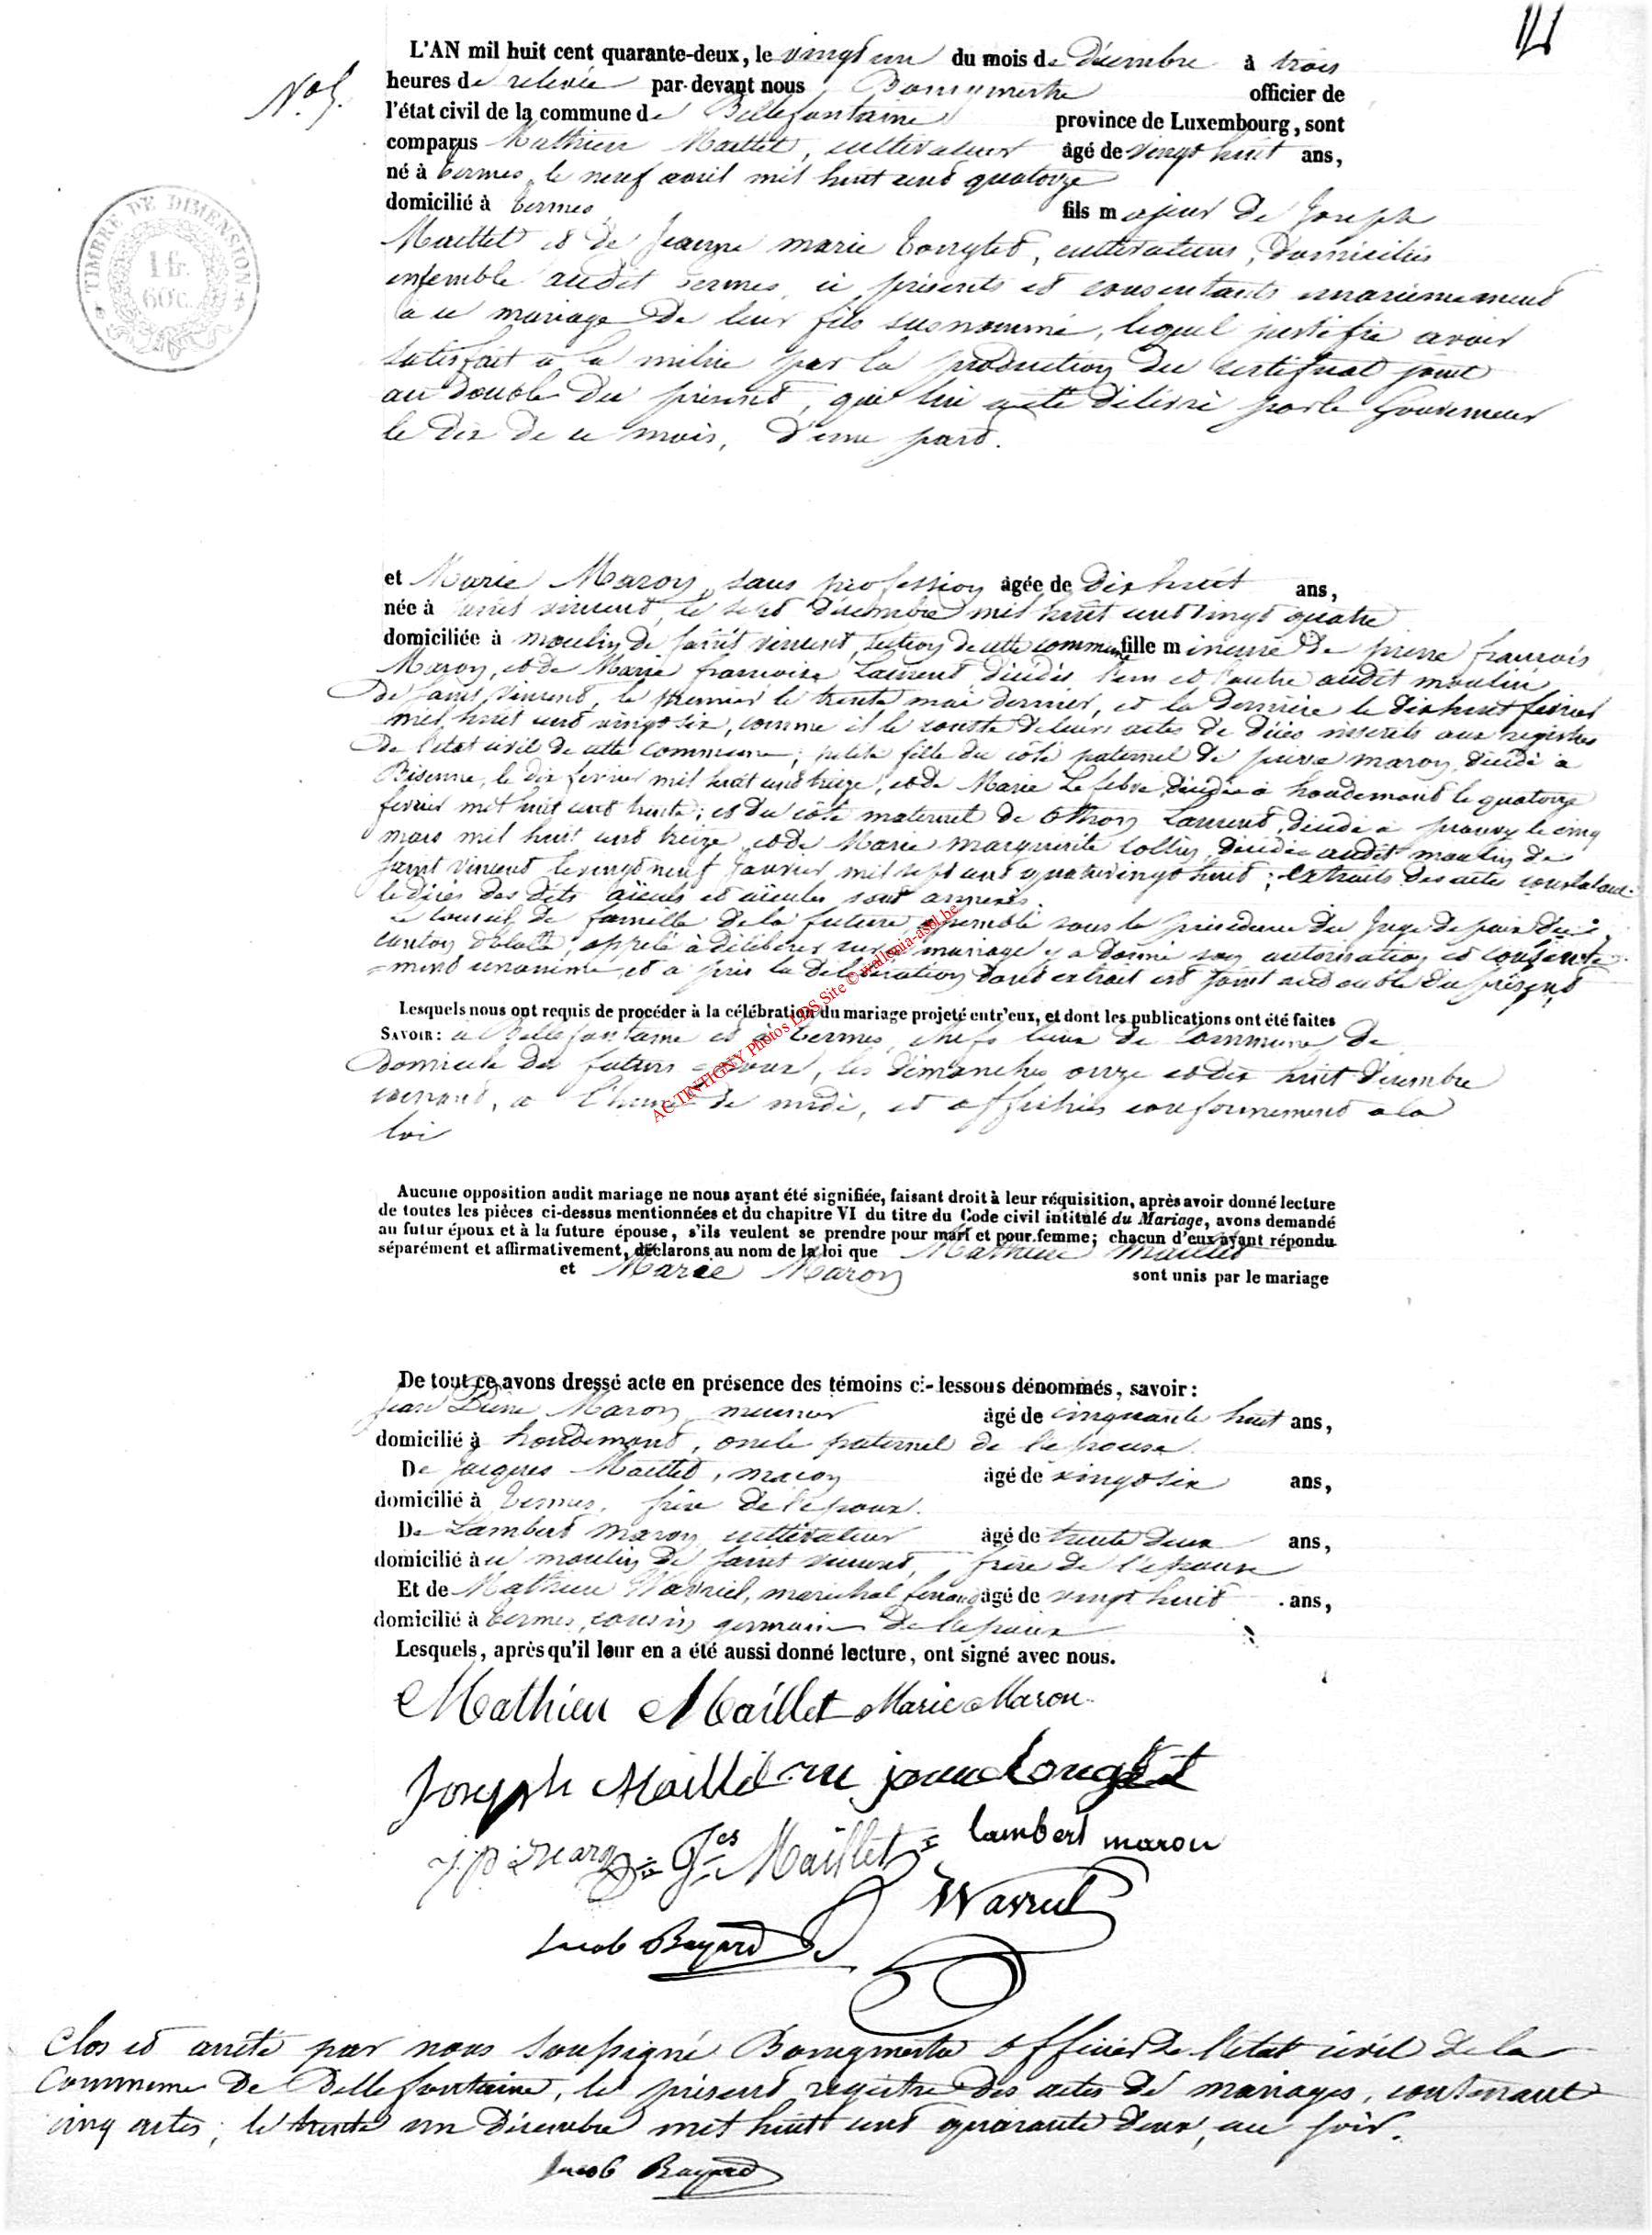 L'AN mil huit cent quarante-deux, le vingt un du mois de décembre à trois
N.° 5.
heures de relevée par-devant nous officier de
l'état civil de la commune de Bellefontaine province de Luxembourg, sont
comparus Mathieu Maillet, cultivateur âgé de vingt huit ans,
né à termes, le neuf avril mil huit cent quatorze
domicilié à termes fils majeur de Joseph
Maillet et de Jeanne marie, cultivateurs, domiciliés
ensemble audit termes, ici présents et consentants unanimement
à ce mariage de leur fils susnommé, lequel justifie avoir
satisfait à la milice par la production du certificat joint
au double du présent, qui lui a été délivré par le Gouverneur
le dix de ce mois, d'une part.
TIMBRE DE DIMENSION
1 fr.
60 c.
et Marie Maron, sans profession âgée de dix huit ans,
née à saint vincent, le sept décembre mil huit cent vingt quatre
domiciliée à moulin de saint vincent, section de cette commune fille mineure de pierre françois
Maron, et de Marie françoise Laurent décédés l'un et l'autre audit moulin
de saint vincent, le premier le trente mai dernier, et la dernière le dix huit février
mil huit cent vingt six, comme il le conste de leurs actes de décès inscrits aux registres
de l'état civil de cette commune; petite fille du côté paternel de pierre maron, décédé à
le dix fevrier mil huit cent treize, et de Marie Lefebvre, décédée à houdemont le quatorze
fevrier mil huit cent trente; et du côté maternel de othon Laurent, décédé à prouvy le cinq
mars mil huit cent treize, et de Marie marguerite Collin décédée audit moulin de
saint vincent le vingt neuf Janvier mil sept cent quatre vingt huit; extraits des actes constatant
le décès des dits aïeuls et aïeules sont annexés.
Le conseil de famille de la future, assemblé sous la présidence du Juge de paix du
canton d'étalle, appelé à délibérer sur ce mariage y a donné son autorisation et consente-
=ment unanime, et a pris la délibération dont extrait est joint au double du présent
Lesquels nous ont requis de procéder à la célébration du mariage projeté entr'eux, et dont les publications ont été faites
SAVOIR: à Bellefontaine et à termes, chefs lieux de commune de
domicile des futurs époux, les dimanches onze et dix huit décembre
courant, à l'heure de midi, et affichées conformément à la
loi
AC TINTIGNY Photos LDS Site © wallonia-asbl.be
Aucune opposition audit mariage ne nous ayant été signifiée, faisant droit à leur réquisition, après avoir donné lecture
de toutes les pièces ci-dessus mentionnées et du chapitre VI du titre du Code civil intitulé du Mariage, avons demandé
au futur époux et à la future épouse, s'ils veulent se prendre pour mari et pour femme; chacun d'eux ayant répondu
séparément et affirmativement, déclarons au nom de la loi que Mathieu Maillet
et Marie Maron sont unis par le mariage
De tout ce avons dressé acte en présence des témoins ci-dessous dénommés, savoir:
Jean Pierre Maron, meunier âgé de cinquante huit ans,
domicilié à houdemont, oncle paternel de l'épouse.
De Jacques Maillet, maçon âgé de vingt six ans,
domicilié à termes, frère de l'époux.
De Lambert maron, cultivateur âgé de trente deux ans,
domicilié au moulin de saint vincent, frère de l'épouse
Et de Mathieu Wavriel, maréchal ferrant âgé de vingt huit ans,
domicilié à termes, cousin germain de l'époux
Lesquels, après qu'il leur en a été aussi donné lecture, ont signé avec nous.
Mathieu Maillet Marie Maron
Joseph Maillet
j p maron Jes Maillet lambert maron
Wavriel
Jacob Bayard
Clos et arrêté par nous soussigné officier de l'état civil de la
Commune de Bellefontaine, le présent registre des actes de mariages, contenant
cinq actes; le trente un décembre mil huit cent quarante deux, au soir.
Jacob Bayard